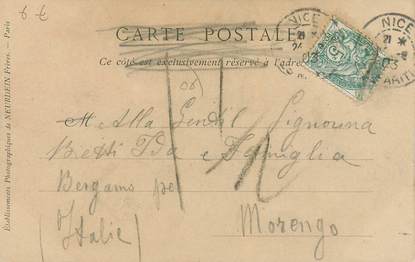 CARTE POSTALE
Ce côté est exclusivement réservé à l'adresse
NICE
NICE
Alla Gentil Signorina
Betti Ida e Famiglia
Bergamo per
Morengo
(Italie)
T
Etablissements Photographiques de NEURDEIN Frères. — Paris